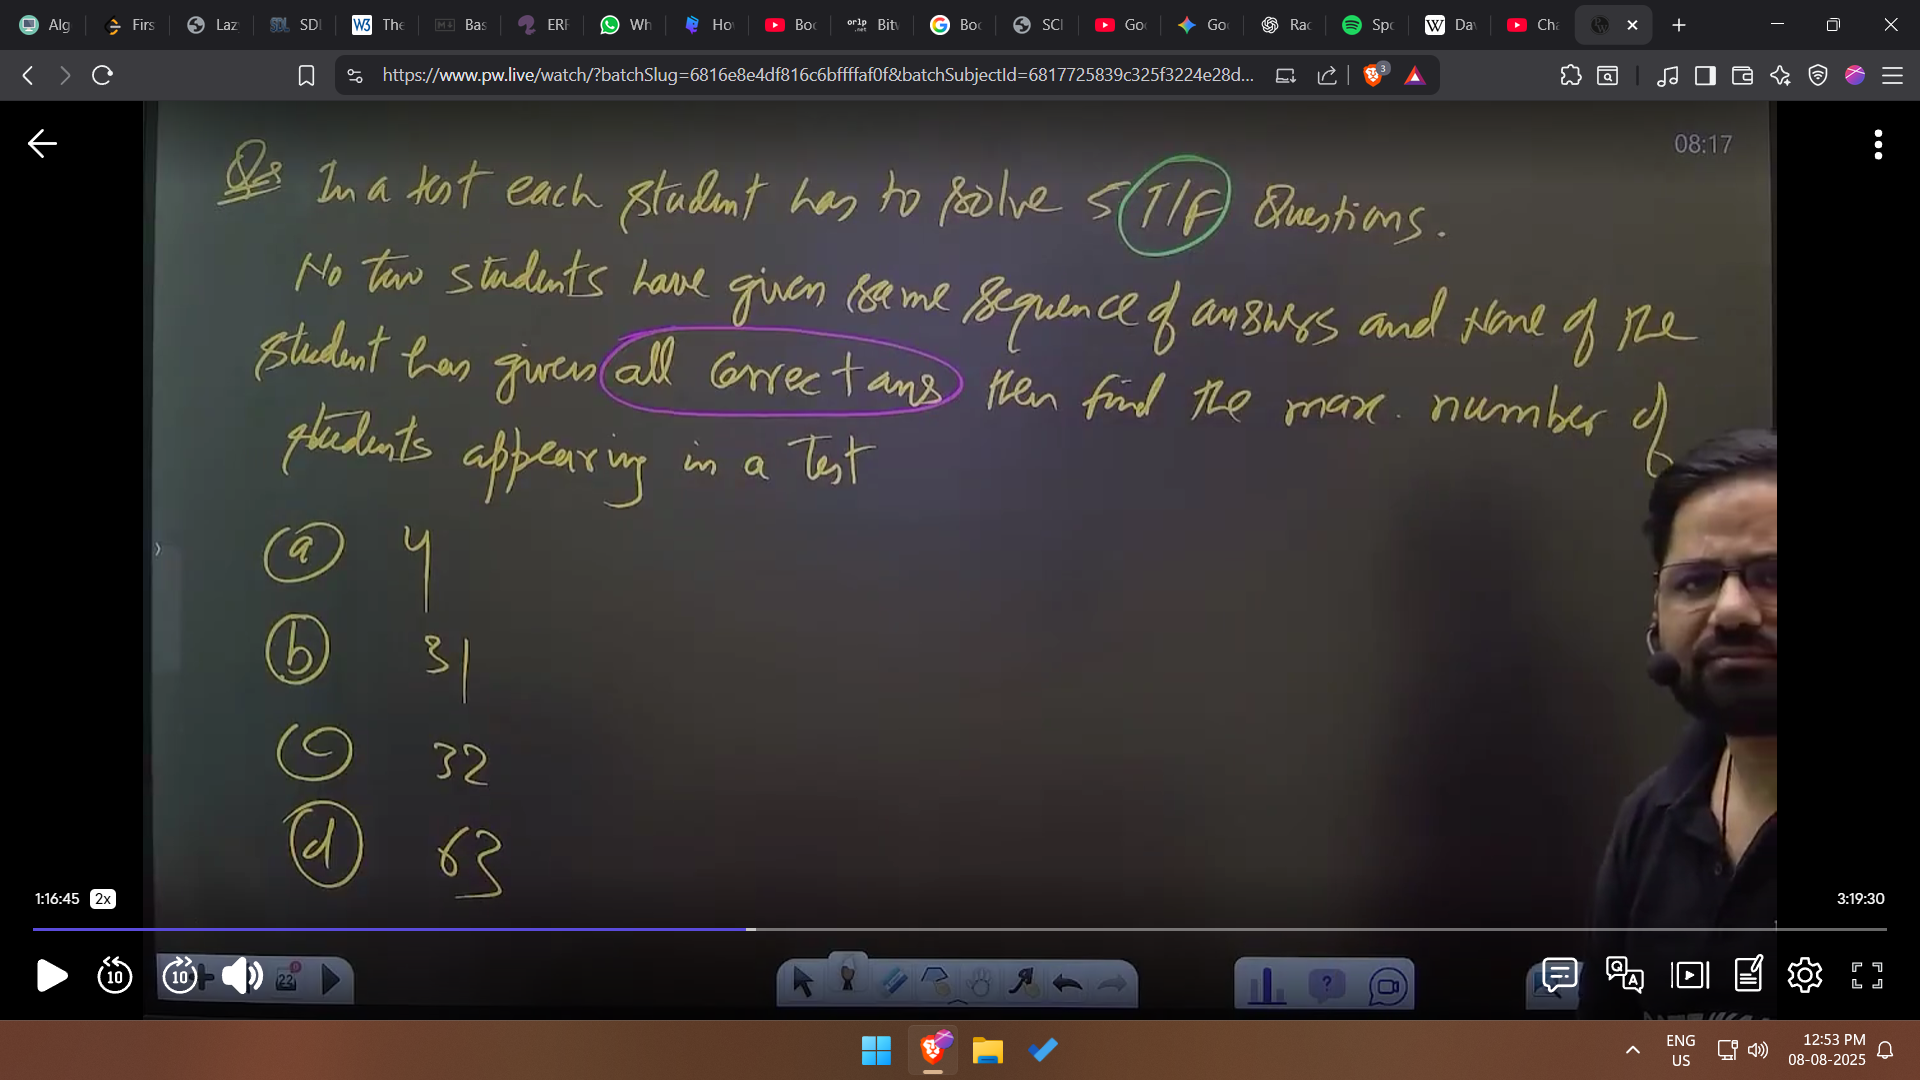 Alg
Firs
Laz
SDI
The
Bas
ERF
Wh
Ho
Boo
Bitv
Boo
SCI
Goo
Goo
Rac
Spo
Da
Cha
https://www.pw.live/watch/?batchSlug=6816e8e4df816c6bffffaf0f&batchSubjectId=6817725839c325f3224e28d...
3
08:17
Qs In a test each student has to solve 5 T/F Questions.
No two students have given same sequence of answers and none of the
student has given all correct ans then find the max. number of
students appearing in a test
a 4
b 31
c 32
d 63
1:16:45 2x
3:19:30
10 10 22
ENG
US
12:53 PM
08-08-2025